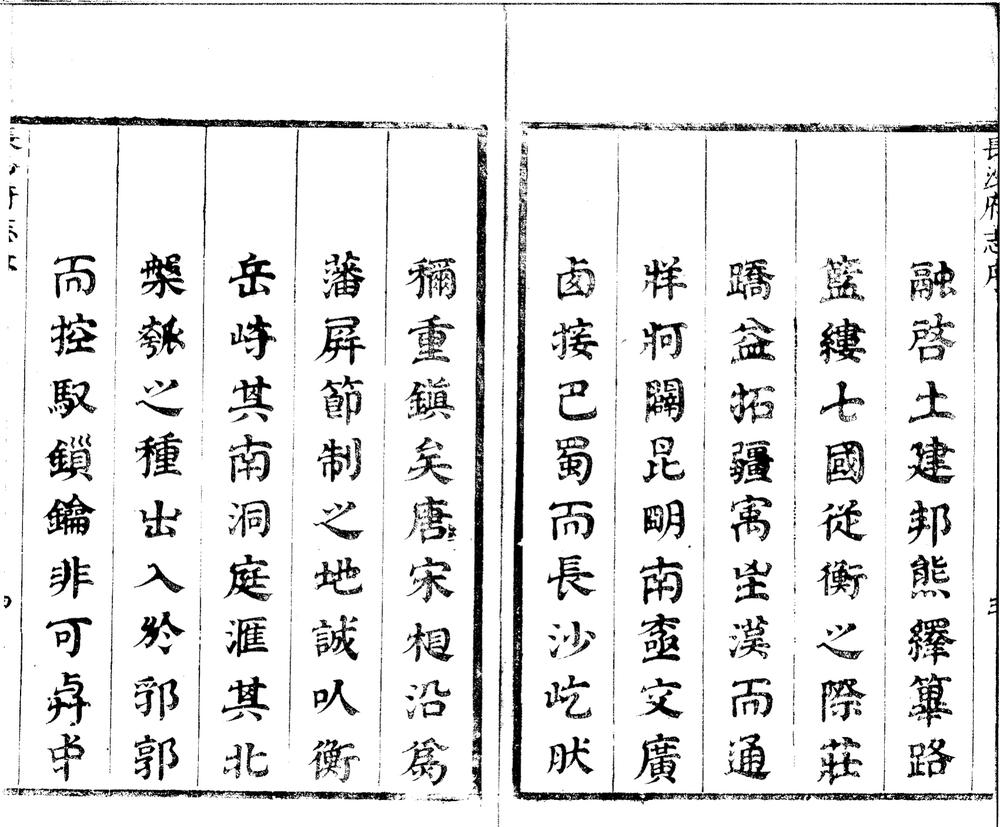 長沙府志序
三
融啓土建邦熊繹篳路
籃縷七國從衡之際莊
蹻益拓疆寓漢而通
牂牁闢昆明南盡交廣
卤接巴蜀而長沙屹肰
穪重鎮矣唐宋相沿爲
藩屏節制之地誠㕥衡
岳峙其南洞庭滙其北
槃瓠之種出入於郛郭
而控馭鎻鑰非可